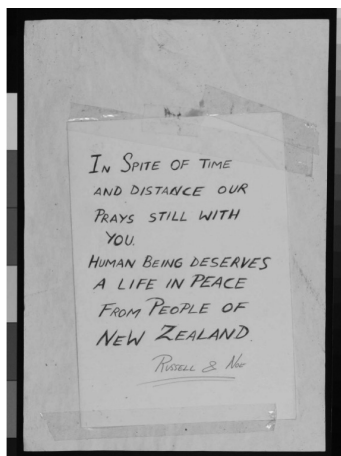 IN SPITE OF TIME
AND DISTANCE OUR
PRAYS STILL WITH
YOU.
HUMAN BEING DESERVES
A LIFE IN PEACE
FROM PEOPLE OF
NEW ZEALAND
RUSSELL &